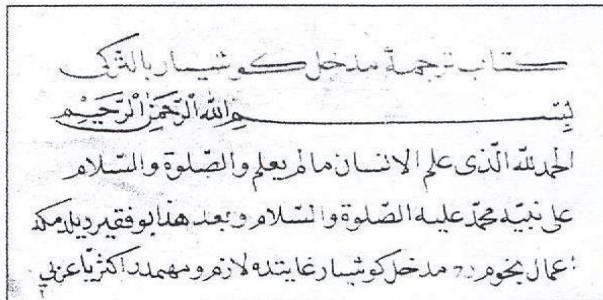 كتاب ترجمۀ مدخل كوشيار بالتركى
بِسْمِ اللهِ الرَّحْمَنِ الرَّحِيْمِ
الحمد لله الّذى علم الانسان مالم يعلم والصّلوة والسّلام
على نبيّه محمّد عليه الصّلوة والسّلام وبعد هذا بو فقير ديلدمكه
اعمال نجوم ده مدخل كوشيار غايتده لازم ومهمدر اكثر يا عربي